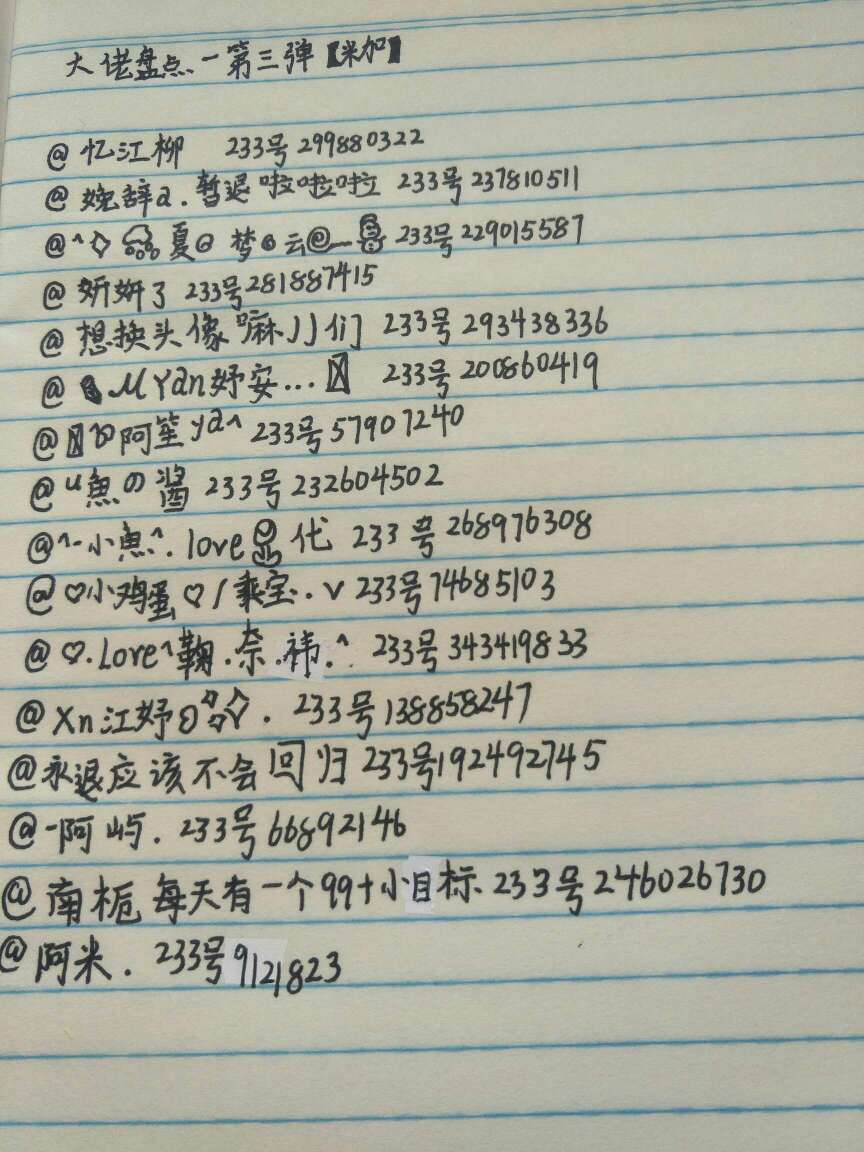 大佬盘点一第三弹【米加】
@忆江柳 233号299880322
@婉辞a.暂退啦啦啦 233号237810511
@^◇夏梦云@— 233号229015587
@妍妍了 233号281887415
@想换头像嘛JJ们 233号293438336
@MYan妤安... 233号200860419
@阿笙ya^ 233号57907240
@"魚の酱 233号232604502
@^-小魚^.love代 233号268976308
@♡小鸡蛋♡/乘宝..v 233号74685103
@♡.Love^鞠.奈.祎.^. 233号343419833
@Xn江妤. 233号138858247
@永退应该不会回归 233号192492745
@-阿屿. 233号66892146
@南栀 每天有一个99+小目标. 233号246026730
@阿米. 233号9121823